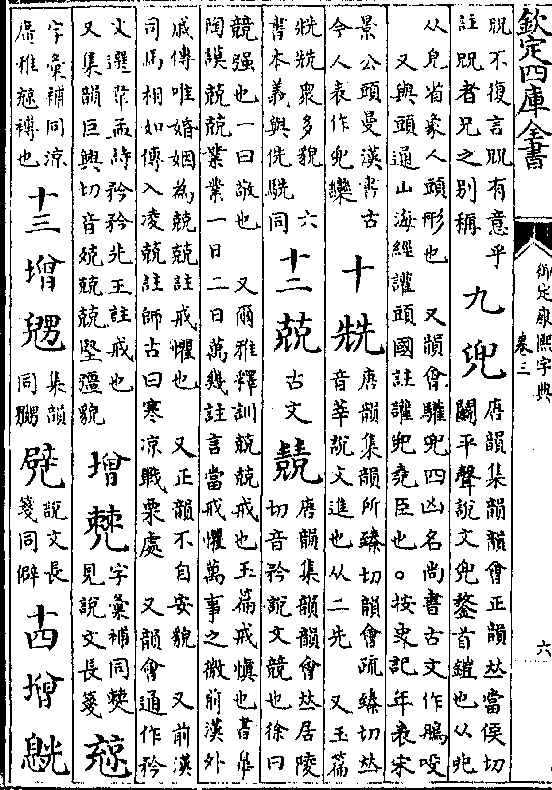 欽定四庫全書
御定康熙字典
卷三
六
況不復言況有意乎
註況者兄之別稱
九
兜
唐韻集韻韻會正韻𠀤當侯切
鬭平聲說文兜鍪首鎧也从𠑹
从皃省象人頭形也　又韻會驩兜四凶名尚書古文作鵰吺
又與頭通山海經讙頭國註讙兜堯臣也。按史記年表宋
景公頭曼漢書古
今人表作兜欒
十
兟
唐韻集韻所臻切韻會疏臻切𠀤
音莘說文進也从二先　又玉篇
兟兟衆多貌　六
書本義與侁駪同
十二
兢
古文
唐韻集韻韻會𠀤居陵
切音矜說文競也徐曰
競强也一曰敬也　又爾雅釋訓兢兢戒也玉篇戒愼也書臯
陶謨兢兢業業一日二日萬幾註言當戒懼萬事之微前漢外
戚傳唯婚姻爲兢兢註戒懼也　又正韻不自安貌　又前漢
司馬相如傳入凌兢註師古曰寒凉戰栗處　又韻會通作矜
文選韋孟詩矜矜先王註戒也
又集韻巨興切音殑兢兢堅彊貌
增
字彙補同僰
見說文長箋
字彙補同涼
廣雅也
十三增
集韻
同嬲
說文長
箋同僻
十四增